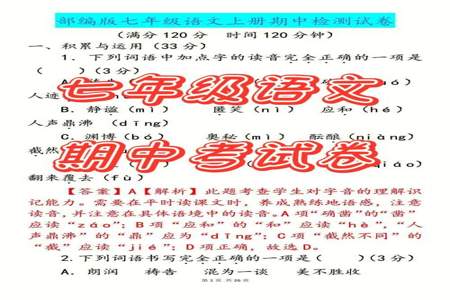 部编版七年级语文上册期中检测试卷
(满分120分 时间120分钟)
一、积累与运用(33分)
1、下列词语中加点字的读音完全正确的一项是
( )(3分)
七年级语文
人迹
B、静谧(mì) 匿笑(nì) 应和(hé)
人声鼎沸(dīng)
C、渊博(bó) 奥秘(mì) 酝酿(niàng)
截然
期中考试卷
翻来覆去(fù)
【答案】A【解析】此题考查学生对字音的理解识
记能力。需要在平时读课文时,养成熟练地语感,注意
读音,并注意在具体语境中的读音。A项“确凿”的“凿”
应读“záo”;B项“应和”的“和”应读“hè”,“人
声鼎沸”的“鼎”应为“dǐng”;C项“截然不同”的
“截”应读“jié”;D项正确,故选D。
2、下列词语书写完全正确的一项是( )(3分)
A、朗润 祷告 混为一谈 美不胜收